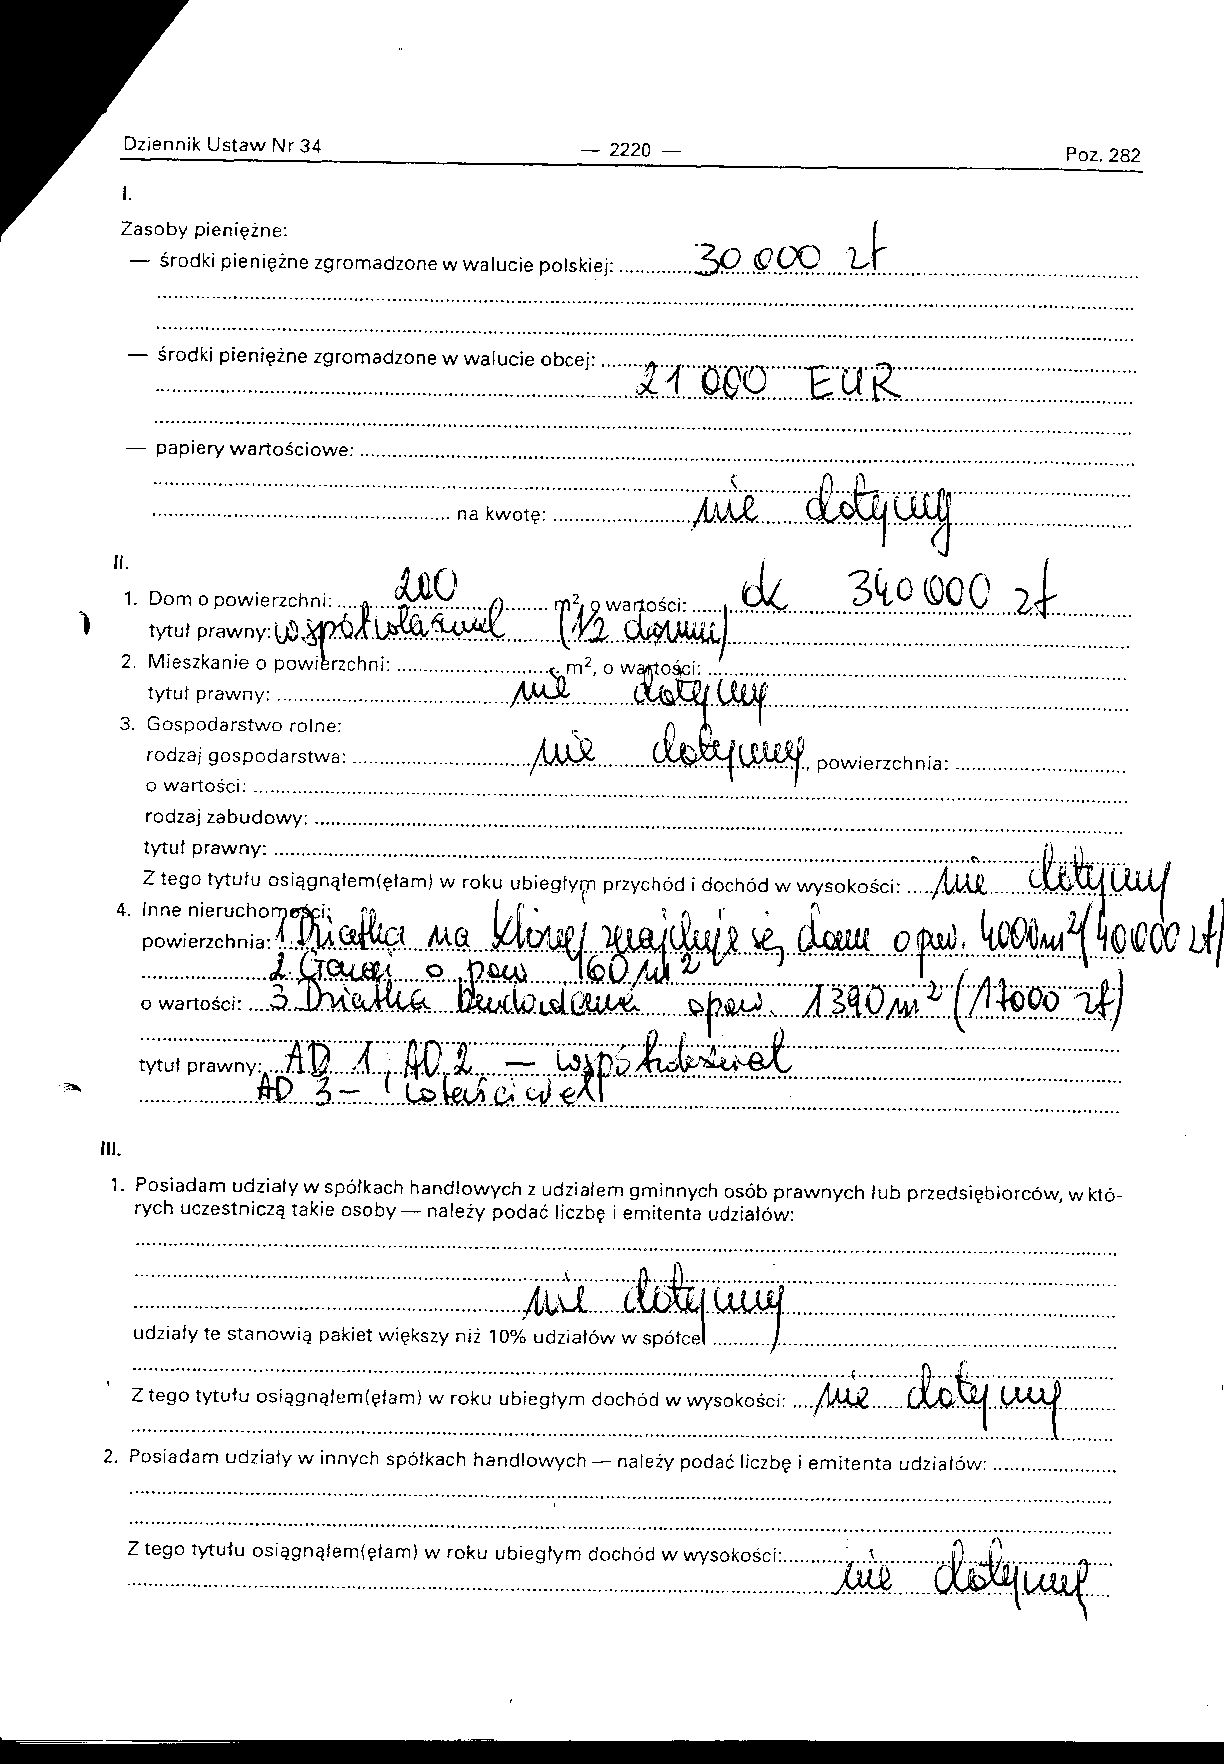 Dziennik Ustaw Nr 34 — 2220 — Poz. 282
I.
Zasoby pieniężne:
— środki pieniężne zgromadzone w walucie polskiej: 30 000 zł
— środki pieniężne zgromadzone w walucie obcej:
21 000 EUR
— papiery wartościowe:
na kwotę: nie dotyczy
II.
1. Dom o powierzchni: 200 m², o wartości: ok 340 000 zł
tytuł prawny: współwłasność (1/2 domu)
2. Mieszkanie o powierzchni: m², o wartości:
tytuł prawny: nie dotyczy
3. Gospodarstwo rolne:
rodzaj gospodarstwa: nie dotyczy, powierzchnia:
o wartości:
rodzaj zabudowy:
tytuł prawny:
Z tego tytułu osiągnąłem(ęłam) w roku ubiegłym przychód i dochód w wysokości: nie dotyczy
4. Inne nieruchomości:
powierzchnia: 1. Działka na której znajduje się dom o pow. 4000m² (40 000 zł)
2. Garaż o pow 160 m²
o wartości: 3. Działka budowlana o pow. 1390 m² (17000 zł)
tytuł prawny: AD 1, AD 2 —
AD 3 – właściciel
III.
1. Posiadam udziały w spółkach handlowych z udziałem gminnych osób prawnych lub przedsiębiorców, w któ-
rych uczestniczą takie osoby — należy podać liczbę i emitenta udziałów:
nie dotyczy
udziały te stanowią pakiet większy niż 10% udziałów w spółce:
Z tego tytułu osiągnąłem(ęłam) w roku ubiegłym dochód w wysokości: nie dotyczy
2. Posiadam udziały w innych spółkach handlowych — należy podać liczbę i emitenta udziałów:
Z tego tytułu osiągnąłem(ęłam) w roku ubiegłym dochód w wysokości:
nie dotyczy